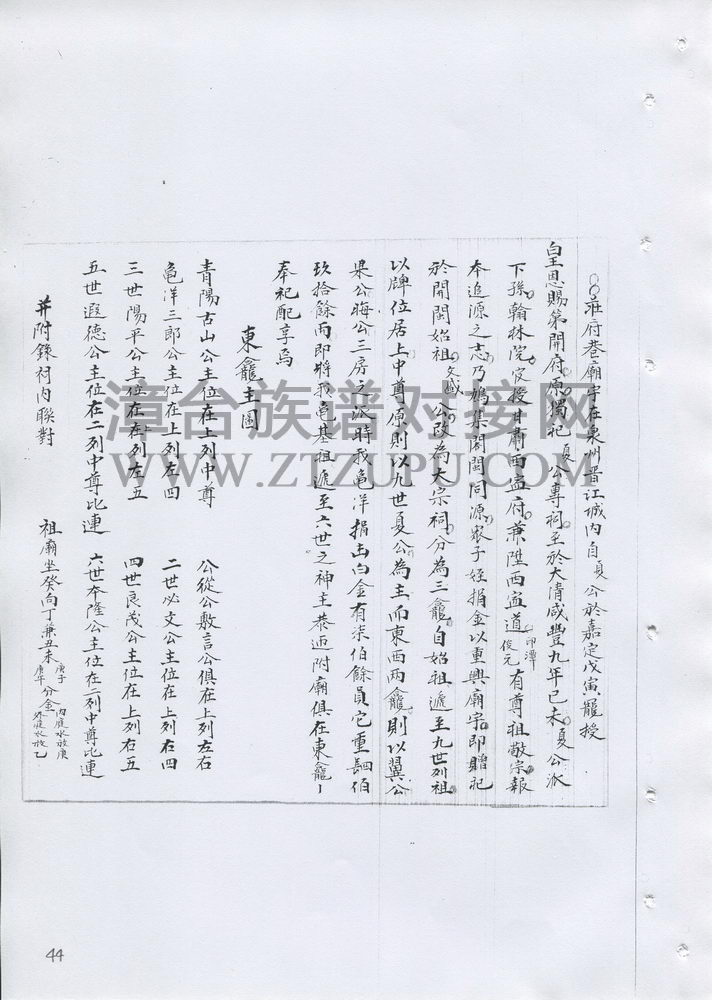 莊府巷廟宇在泉州晋江城内自夏公於嘉定戊寅寵授
皇恩賜第開府原獨祀夏公專祠至於大清咸豐九年己未夏公派
下孫翰林院官授甘肅西寧府兼陞西寧道印潭俊元有尊祖敬宗報
本追源之志乃鳩集閤閩同源衆子姪捐金以重興廟宇即贈祀
於開閩始祖文盛公改為大宗祠分為三龕自始祖遞至九世列祖
以牌位居上中尊原則以九世夏公為主而東西兩龕則以翼公
杲公晦公三房之派時我龜洋捐出白金有柒伯餘員它重四伯
玖拾餘兩即將我龜基祖遞至六世之神主恭迎附廟俱在東龕
奉祀配享焉
東龕主圖
青陽古山公主位在上列中尊
公從公敷言公俱在上列左右
龜洋三郎公主位在上列左四
二世必文公主位在上列右四
三世陽平公主位在在列左五
四世良茂公主位在上列右五
五世遐德公主位在二列中尊比連
六世本隆公主位在二列中尊比連
并附錄祠内聯對
祖廟坐癸向丁兼丑未庚子庚午分金内庭水放庚外庭水放乙
漳台族谱对接网
WWW.ZTZUPU.COM
44